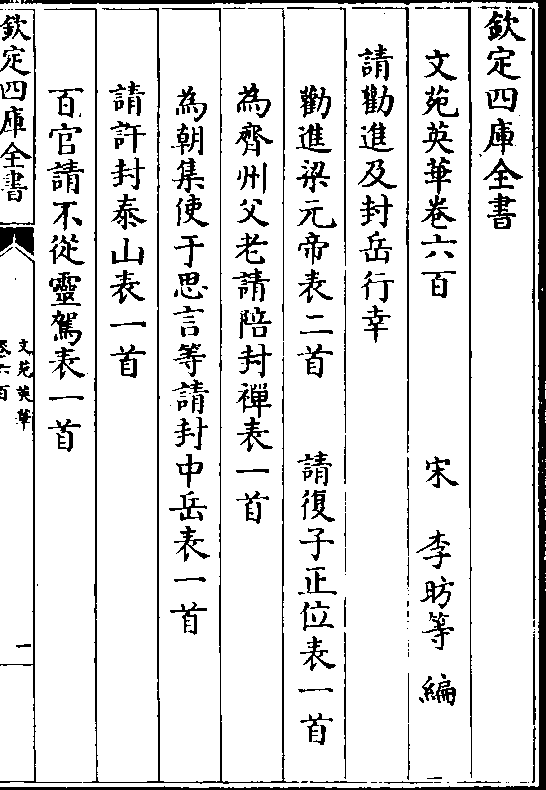 欽定四庫全書
文苑英華卷六百
宋 李昉等 編
請勸進及封岳行幸
勸進梁元帝表二首 請復子正位表一首
為齊州父老請陪封禪表一首
為朝集使于思言等請封中岳表一首
請許封泰山表一首
百官請不從靈駕表一首
欽定四庫全書
文苑英華
卷六百
一